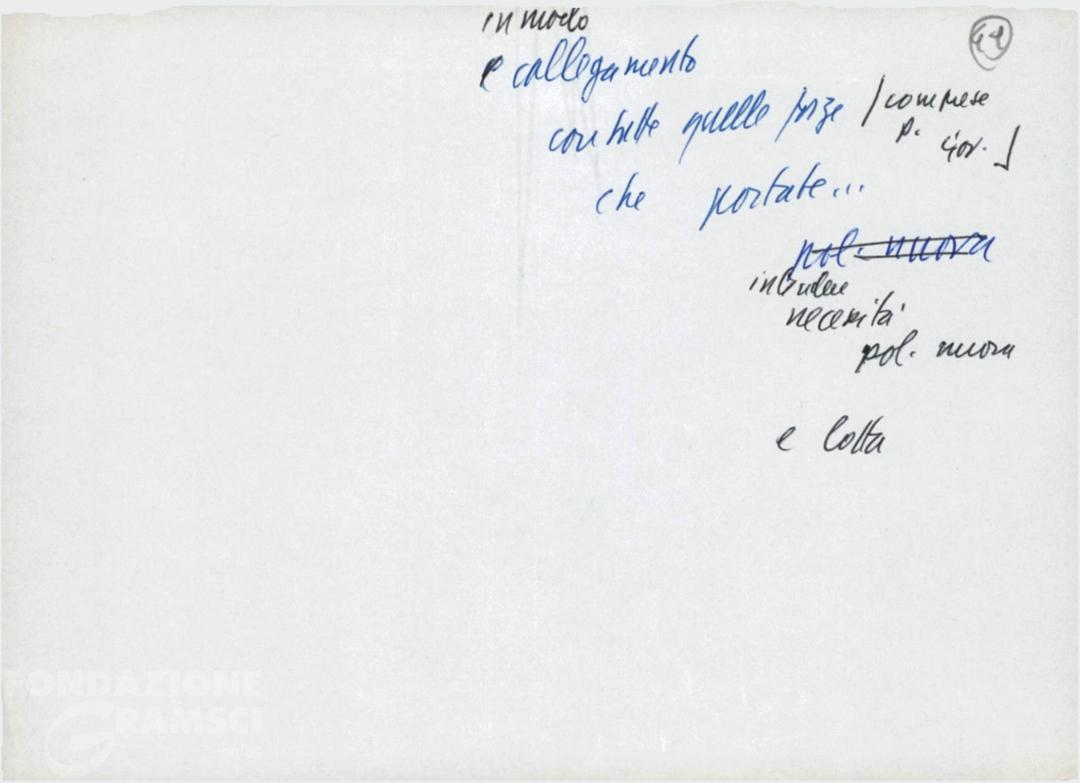 in modo
e collegamento
con tutte quelle forze / comprese
p. giov. ]
che portate...
pol. nuova
intendere
necessità
pol. nuova
e lotta
FONDAZIONE
GRAMSCI